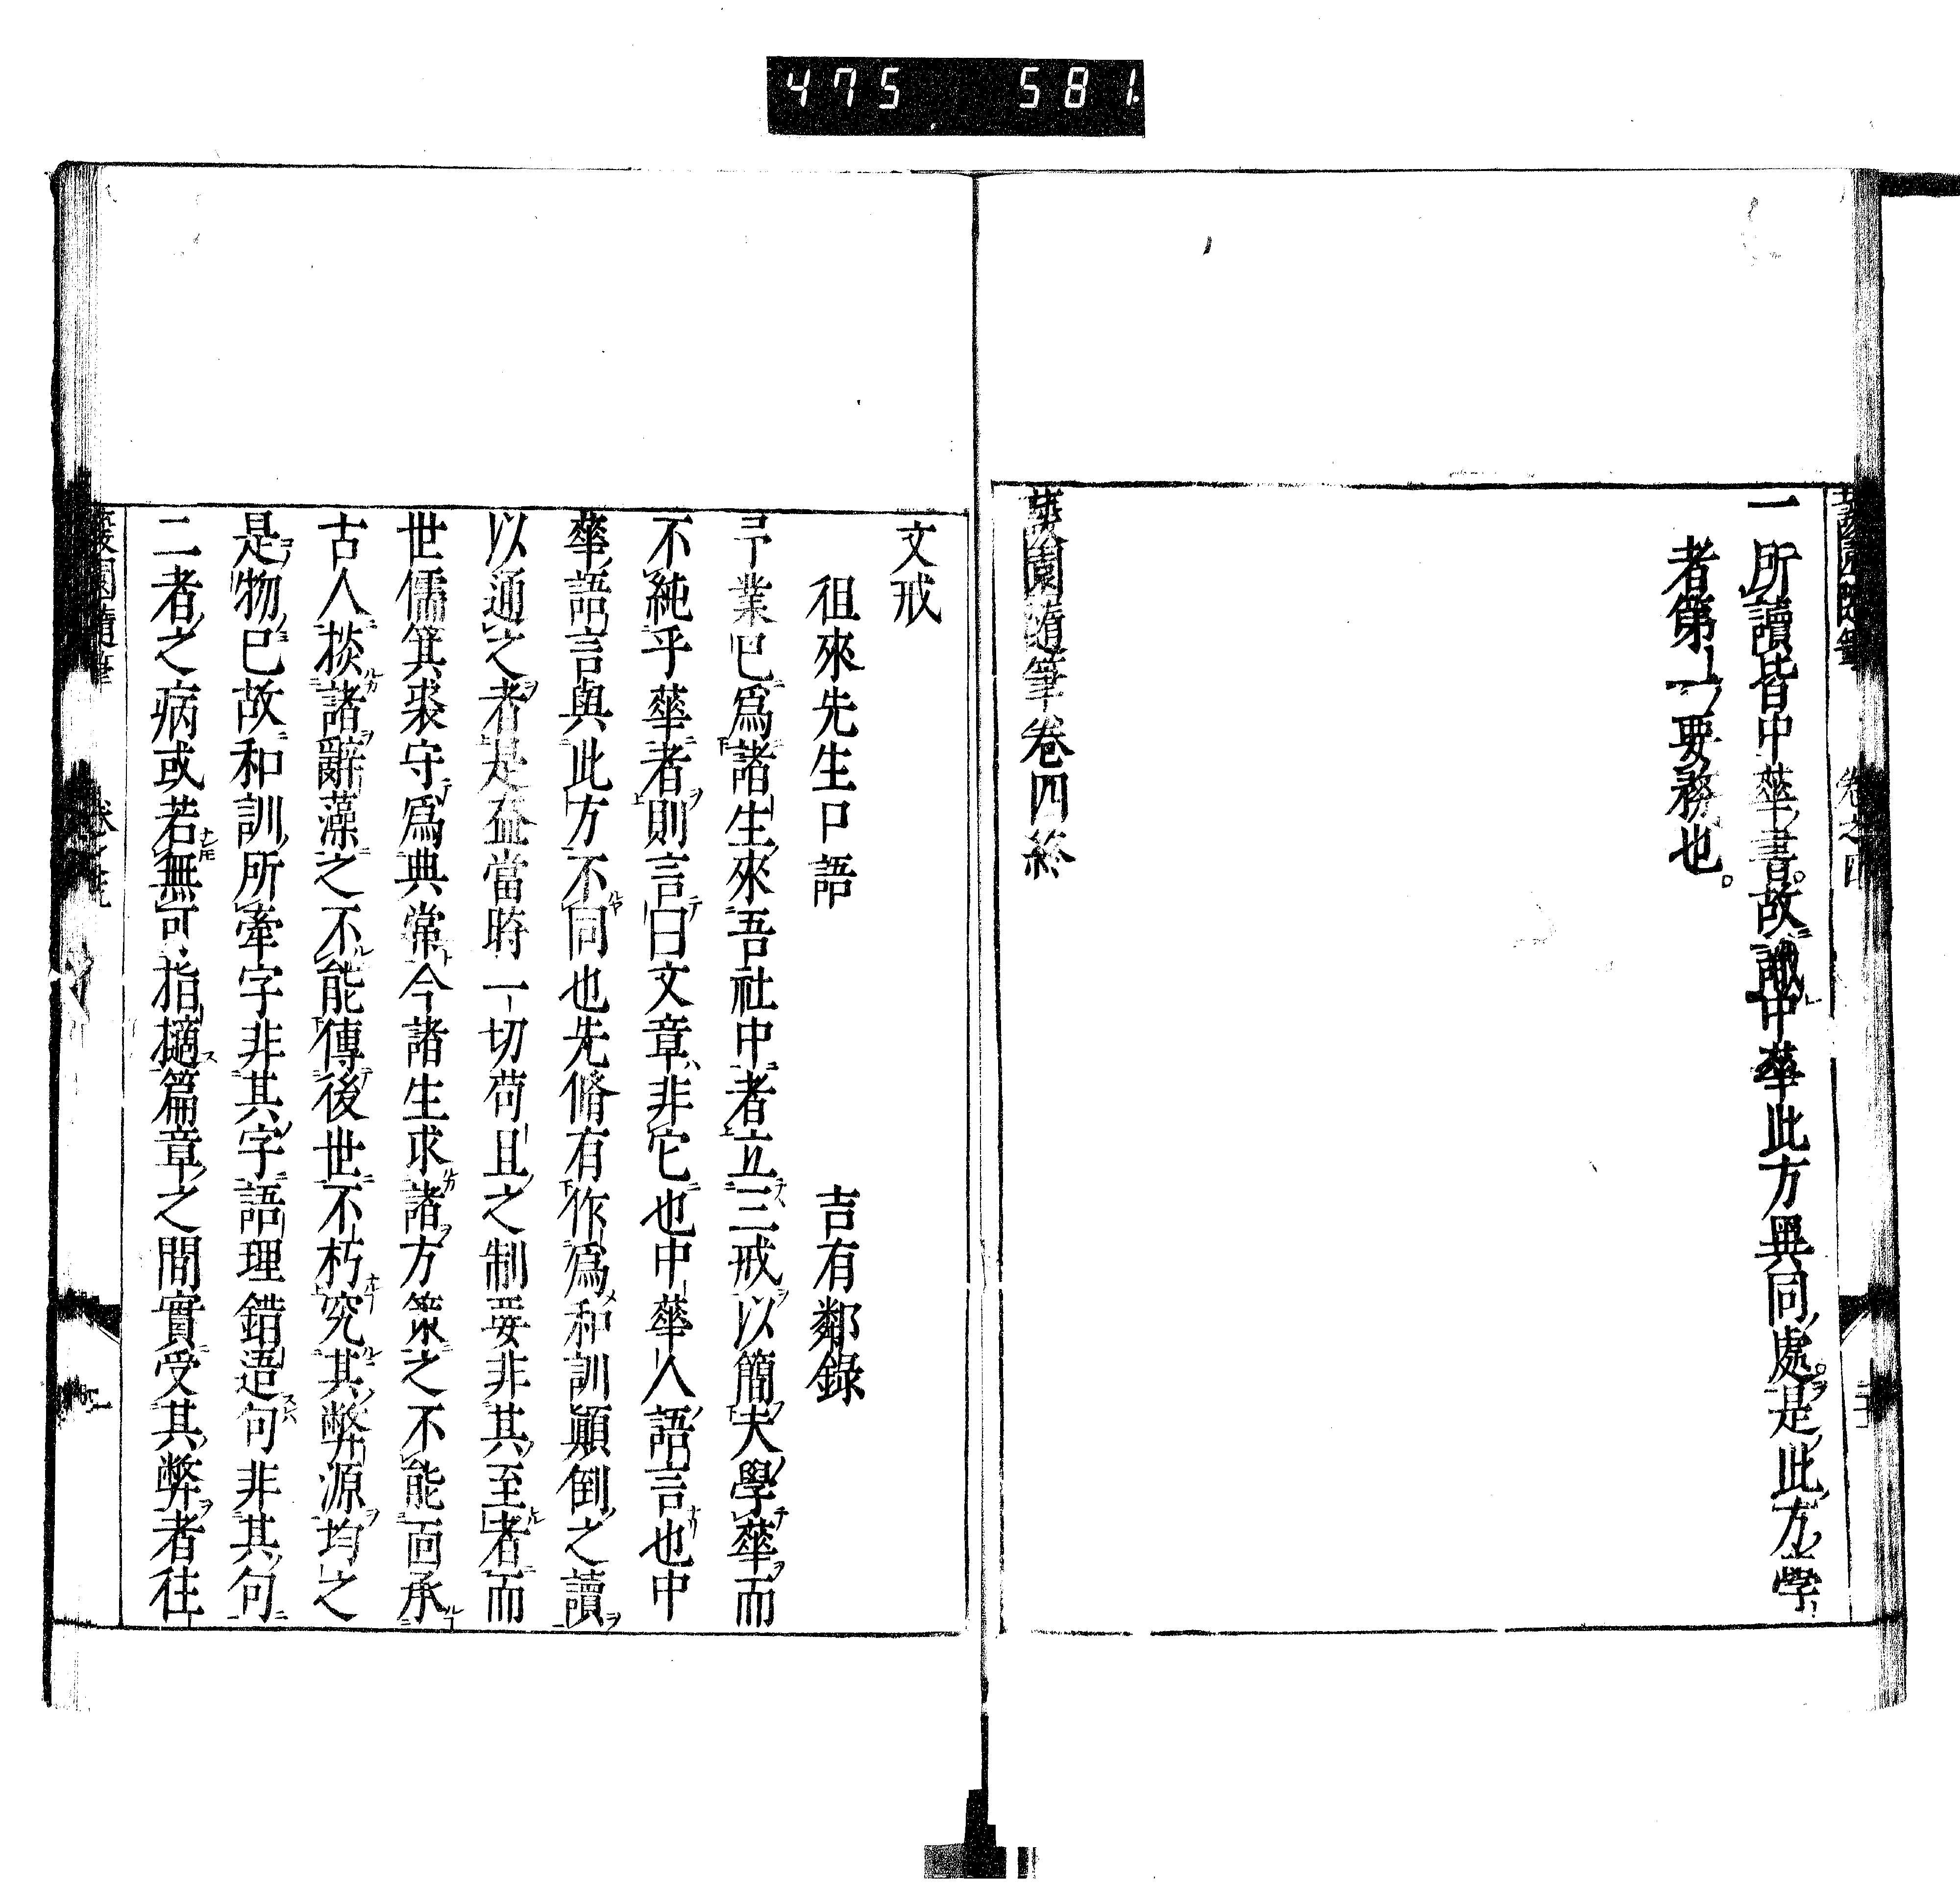 475 581.
一所讀皆中華書故識中華此方異同處是此方學
者第一要務也
蘐園隨筆卷四終
文戒
徂來先生口語 吉有鄰錄
予業已爲諸生來吾社中者立三戒以簡夫學華而
不純乎華者則言曰文章非它也中華人語言也中
華語言與此方不同也先脩有作爲和訓顚倒之讀
以通之者是蓋當時一切苟且之制要非其至者而
世儒箕裘守爲典常今諸生求諸方策之不能靣承
古人掞諸辭藻之不能傳後世不朽究其弊源均之
是物已故和訓所牽字非其字語理錯迕句非其句
二者之病或若無可指擿篇章之間實受其弊者往